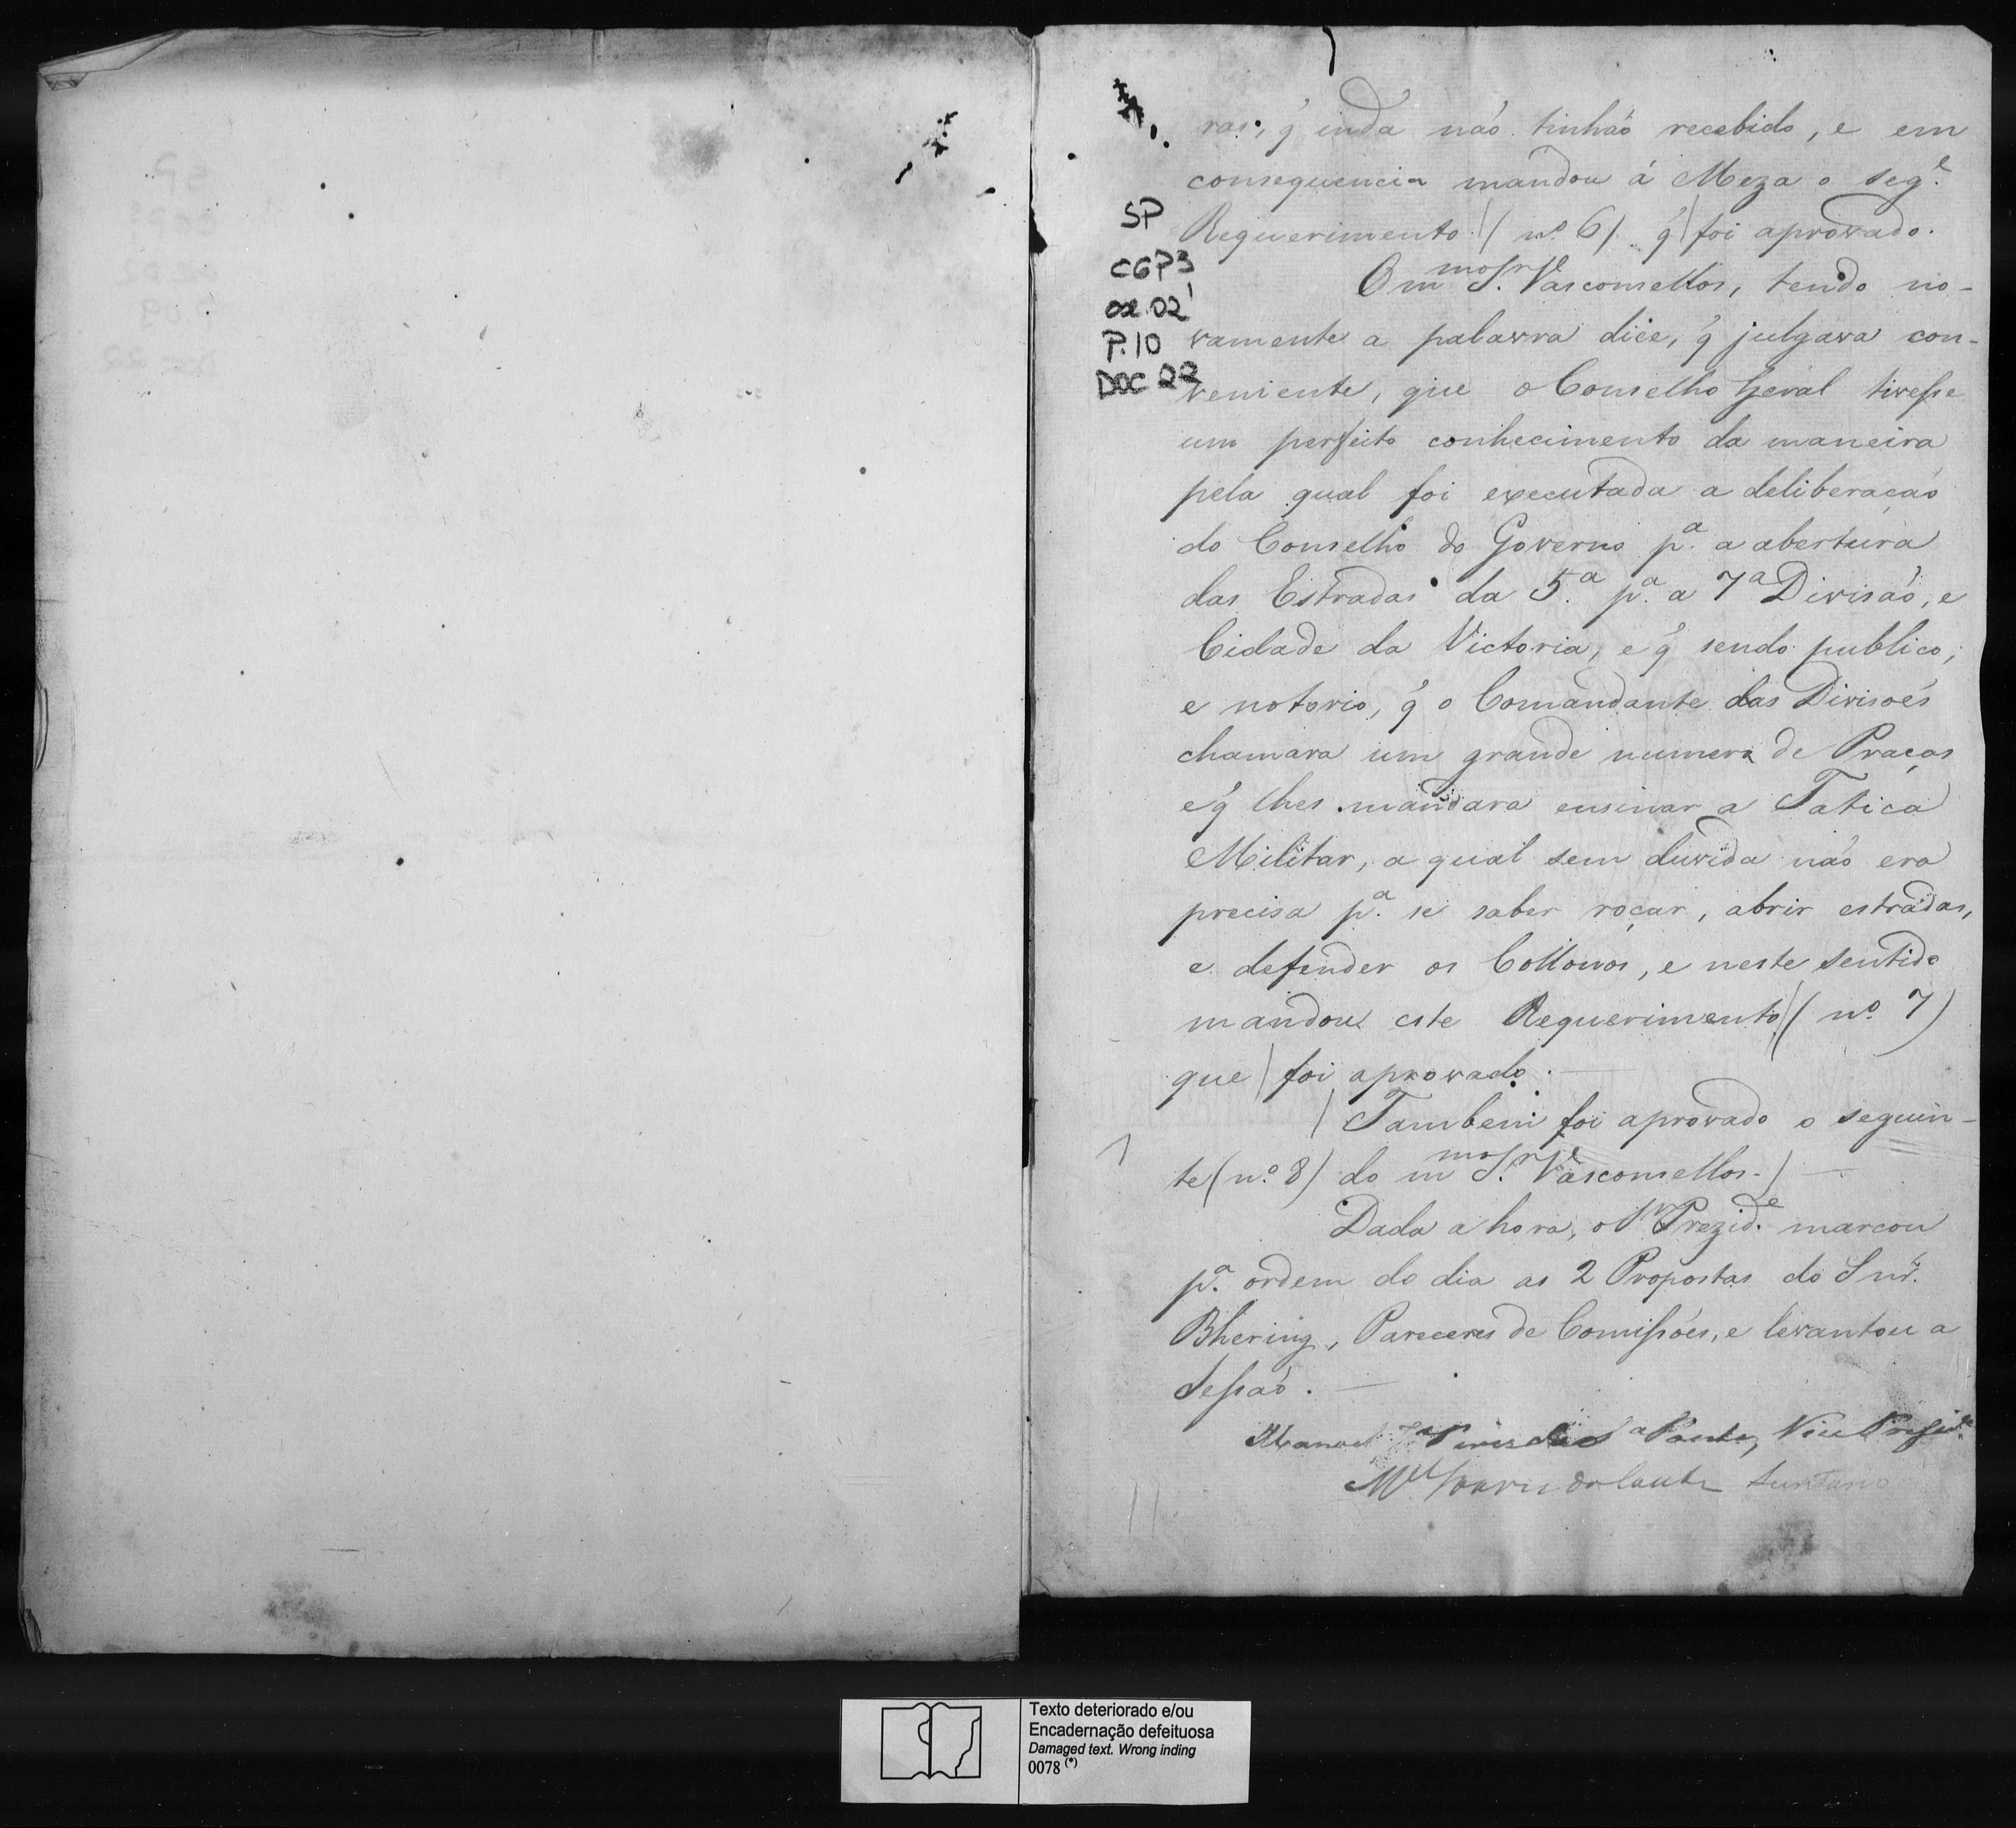 ras, q̃ inda não tinhão recebido, e em
consequencia mandou á Meza o seg.e
Requerimento (nº 6) q̃ foi aprovado.
O m.mo S.r Vasconsellos, tendo no-
vamente a palavra dice, q̃ julgava con-
veniente, que o Conselho Geral tivesse
um perfeito conhecimento da maneira
pela qual foi executada a deliberação
do Conselho do Governo p.a a abertura
das Estradas da 5.a p.a a 7a Divisão, e
Cidade da Victoria, e q̃ sendo publico,
e notorio, q̃ o Comandante das Divisoẽs
chamara um grande numero de Praças
e q̃ lhes mandara ensinar a Tatica
Militar, a qual sem duvida não era
precisa p.a se saber roçar, abrir estradas,
e defender os Collonos, e neste sentido
mandou este Requerimento (nº 7)
que foi aprovado.
Tambem foi aprovado o seguin-
te (nº 8) do m.mo S.r Vasconsellos.
Dada a hora, o S.r Prezid.e marcou
p.a ordem do dia as 2 Propostas do Snr.
Bhering, Pareceres de Comissões, e levantou a
Sessão.
Manoel Pires da S.a Pontes, Vice Presid.e
M.el Soares do Couto
SP
CGP3
cx.02
P.10
DOC 22
Texto deteriorado e/ou
Encadernação defeituosa
Damaged text. Wrong inding
0078 (*)